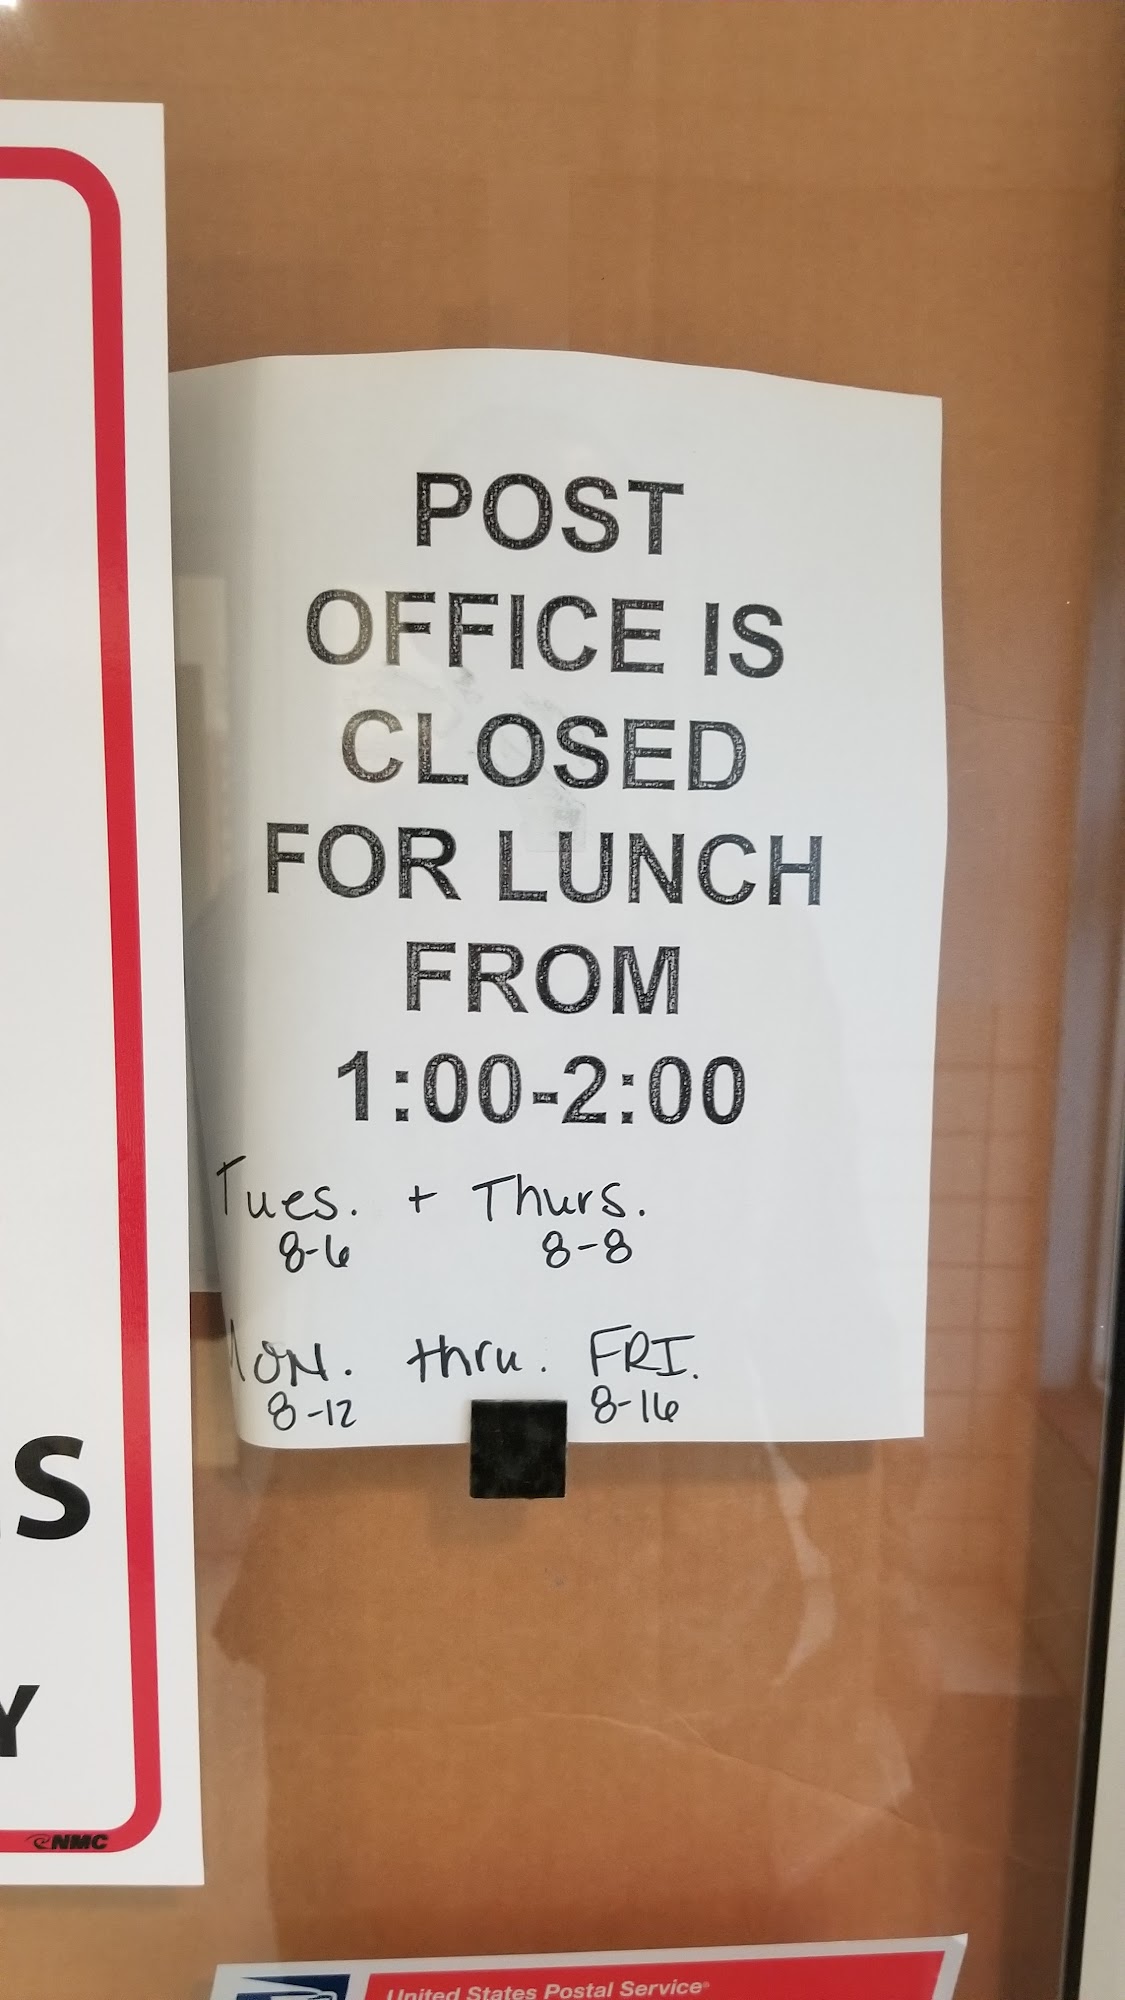 POST
OFFICE IS
CLOSED
FOR LUNCH
FROM
1:00-2:00
Tues. + Thurs.
8-6 8-8
Mon. thru. FRI.
8-12 8-16
S
Y
NMC
United States Postal Service®